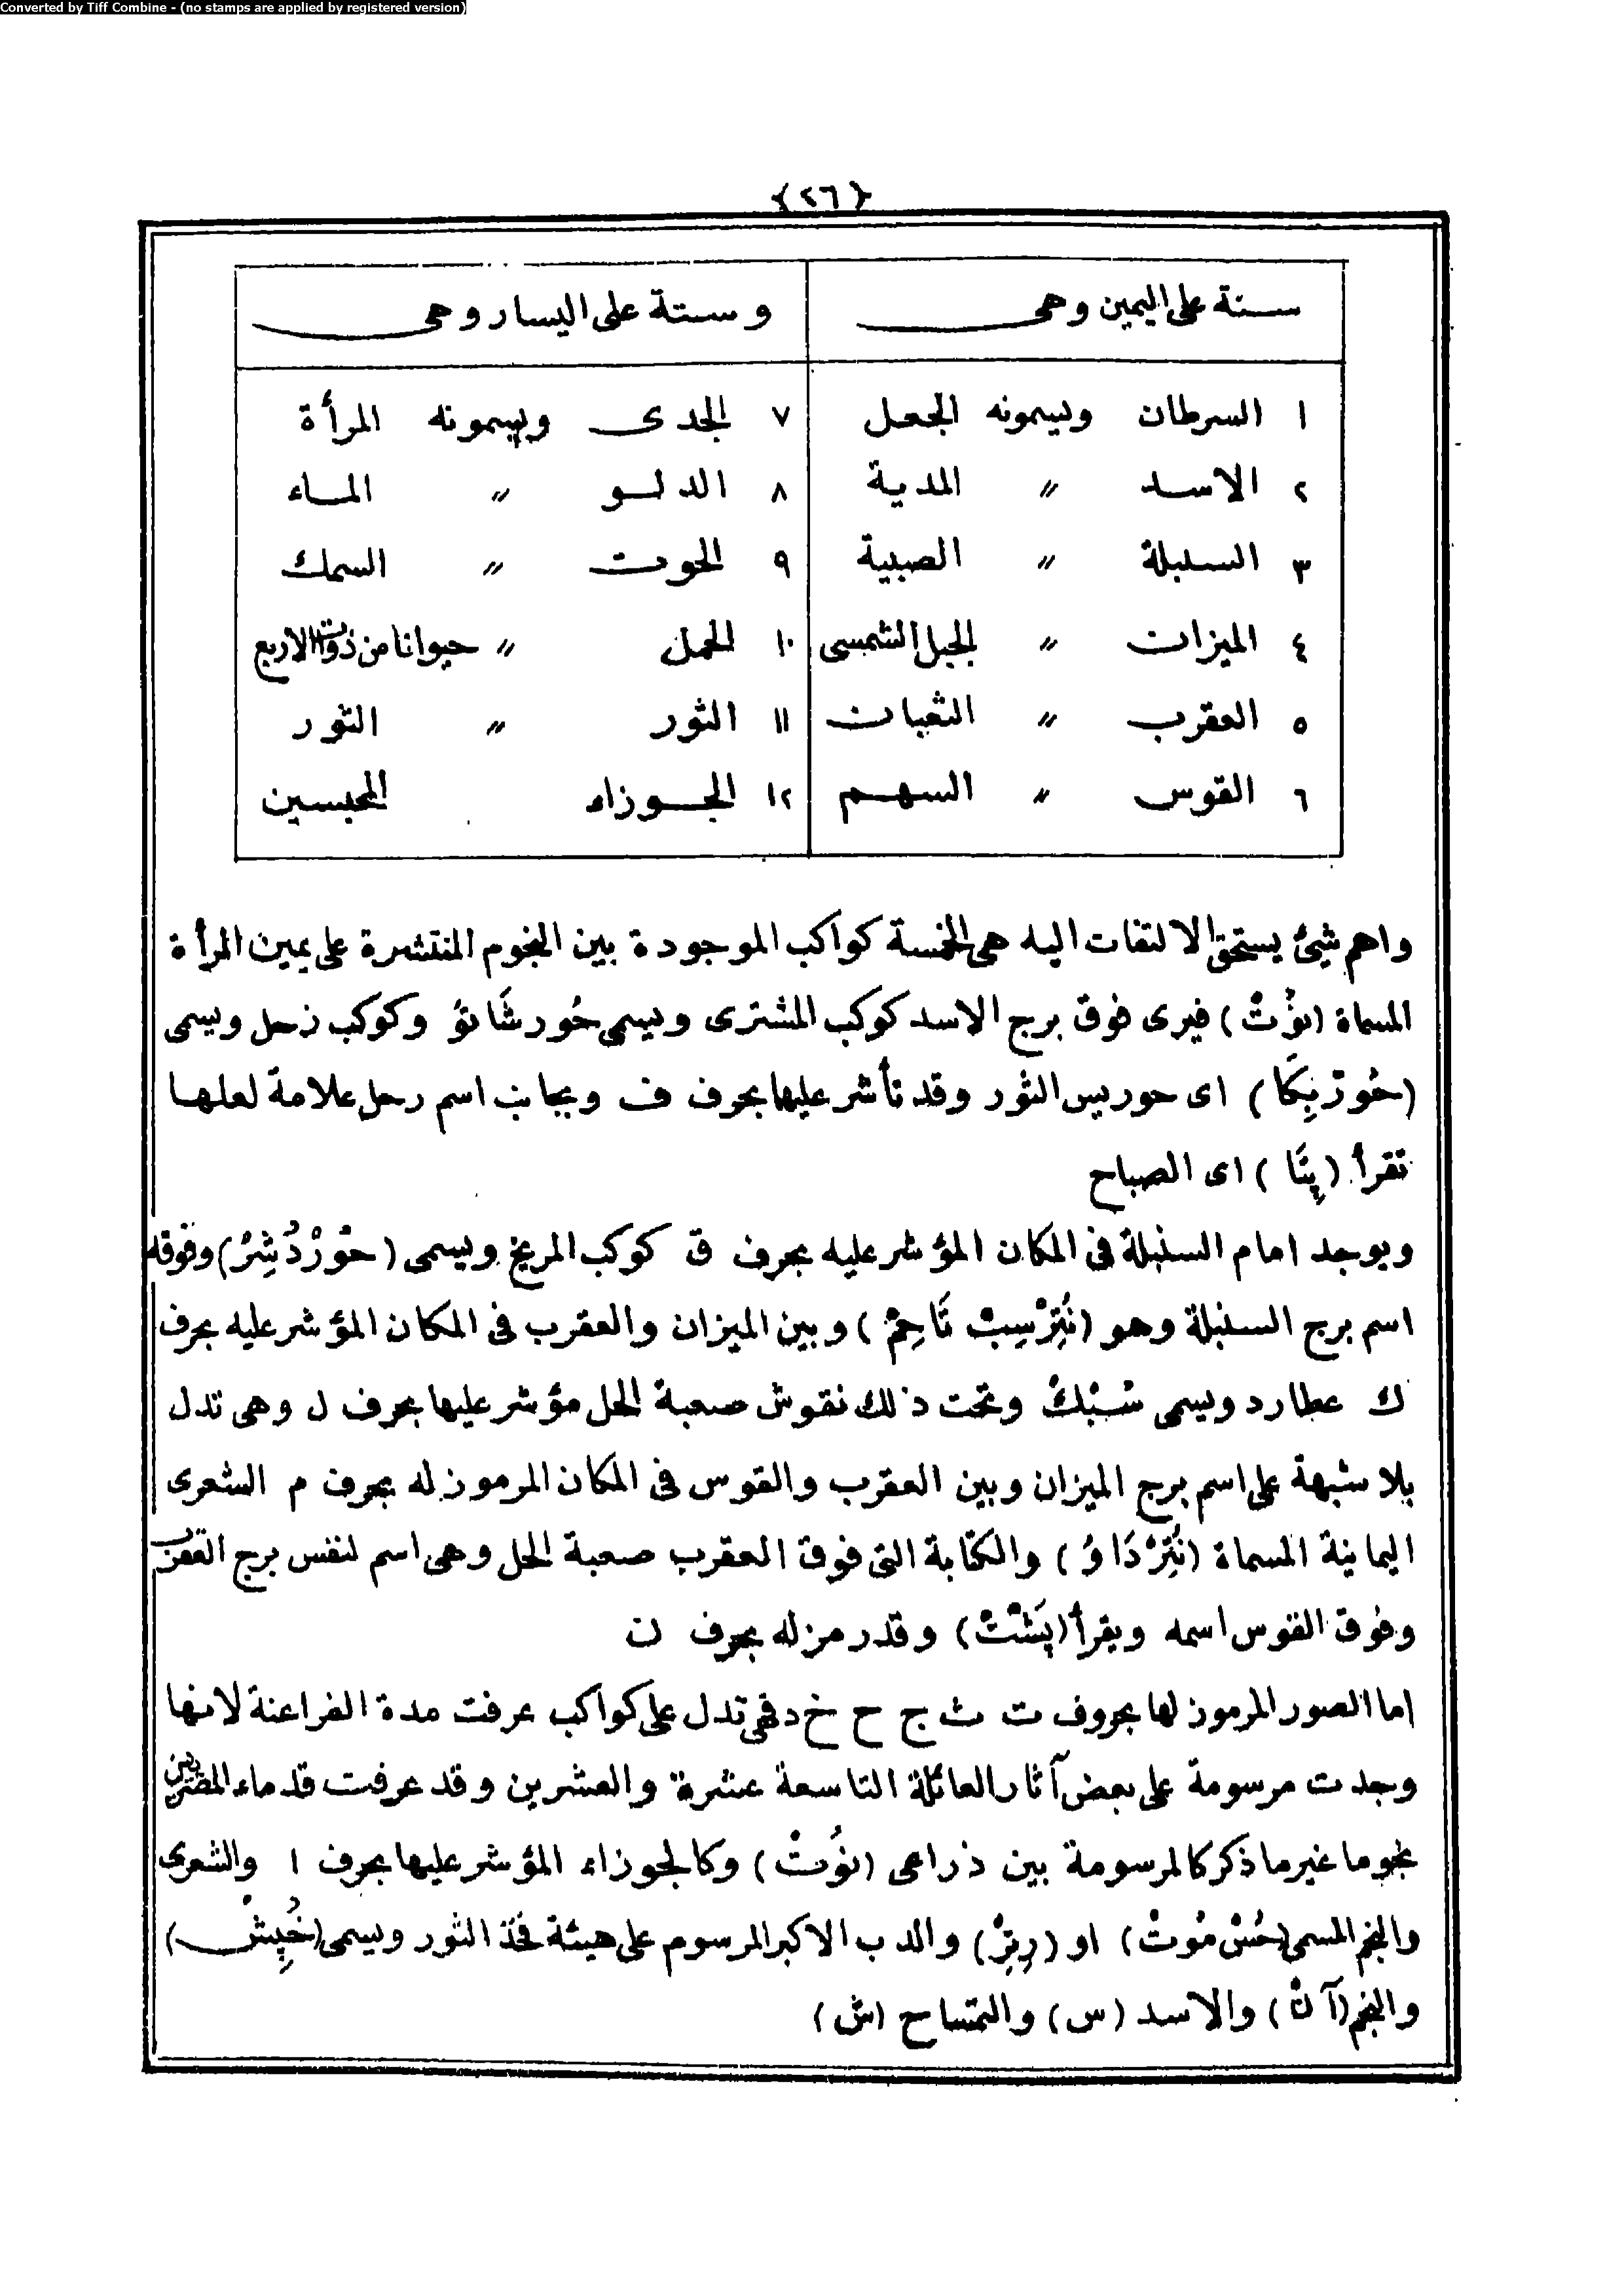 Converted by Tiff Combine - (no stamps are applied by registered version)
{٢٦}
ستة على اليمين وهى
١ السرطان ويسمونه الجعل
٢ الاسد " المدية
٣ السنبلة " الصبية
٤ الميزان " الجبل الشمسى
٥ العقرب " الثعبان
٦ القوس " السهم
وستة على اليسار وهى
٧ الجدى ويسمونه المرأة
٨ الدلو " الماء
٩ الحوت " السمك
١٠ الحمل " حيوانا من ذوات الاربع
١١ الثور " الثور
١٢ الجوزاء المحبسين
واهم شيئ يستحق الالتفات اليه هى الخمسة كواكب الموجودة بين النجوم المنتشرة على يمين المرأة
المسماة (نوُتْ) فيرى فوق برج الاسد كوكب المشترى ويسمى حُور شَاتؤ وكوكب زحل ويسمى
(حُورْبِكَا) اى حوريس الثور وقد تأشر عليها بحرف ف وبجانب اسم رحل علامة لعلها
تقرأ (بِتَا) اى الصباح
ويوجد امام السنبلة فى المكان المؤشر عليه بحرف ق كوكب المريخ ويسمى (حُورْدُشِرْ) وفوقه
اسم برج السنبلة وهو (نُتِرْسِبْ تَاحِمْ) وبين الميزان والعقرب فى المكان المؤشر عليه بحرف
ك عطارد ويسمى سُبْكْ وتحت ذلك نقوش صعبة الحل مؤشر عليها بحرف ل وهى تدل
بلا شبهة على اسم برج الميزان وبين العقرب والقوس فى المكان المرموز له بحرف م الشعرى
اليمانية المسماة (نُتِرْدَاوُ) والكتابة التى فوق العقرب صعبة الحل وهى اسم لنفس برج العقرب
وفوق القوس اسمه ويقرأ (پَشْتْ) وقد رمز له بحرف ن
اما الصور المرموز لها بحروف ت ث ج ح خ د فهى تدل على كواكب عرفت مدة الفراعنة لانها
وجدت مرسومة على بعض آثار العائلة التاسعة عشرة والعشرين وقد عرفت قدماء المصريين
نجوما غير ما ذكر كالمرسومة بين ذراعى (نوُتْ) وكالجوزاء المؤشر عليها بحرف ا والشعرى
والنجم المسمى (حُسْ مُوتْ) او (رِتِرْ) والدب الاكبر المرسوم على هيئة فخذ الثور ويسمى (خُپِشْ)
والنجم (آنْ) والاسد (س) والتمساح (ش)